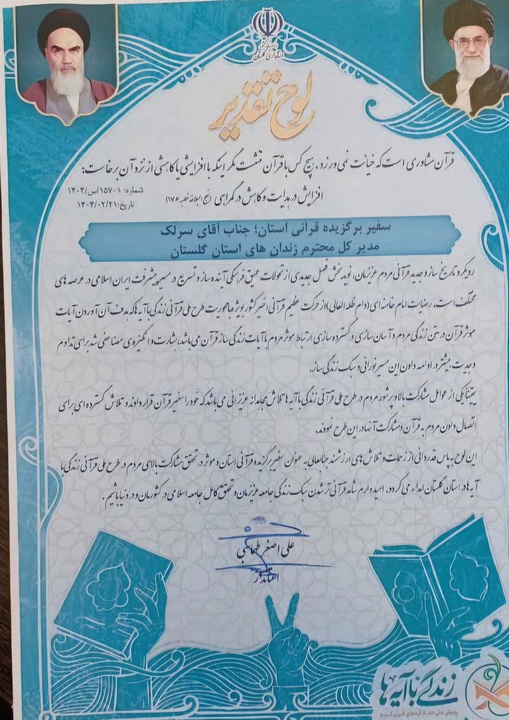 لوح تقدیر
قرآن مشاوری است که خیانت نمی ورزد، هیچ کس با قرآن ننشست مگر اینکه با افزایش یا کاستی از نزد آن برخاست:
افزایش در هدایت و کاهش در گمراهی (نهج البلاغه خطبه ۱۷۶)
شماره: ۱۵۷۰۱/ص/۱۴۰۳
تاریخ: ۱۴۰۳/۰۲/۳۱
سفیر برگزیده قرآنی استان؛ جناب آقای سرلک
مدیر کل محترم زندان های استان گلستان
رویکرد تاریخ ساز و جدید قرآنی مردم عزیزمان، نوید بخش فصل جدیدی از تحولات عمیق فرهنگی آینده ساز و تسریع در مسیر پیشرفت ایران اسلامی در عرصه های
مختلف است. رضایت امام خامنه ای (دام ظله العالی) از حرکت عظیم قرآنی اخیر کشور و بویژه ماموریت طرح ملی قرآنی زندگی با آیه ها که با هدف آن آوردن آیات
موثر قرآن در متن زندگی مردم و آسان سازی و گسترده سازی ارتباط موثر مردم با آیات زندگی ساز قرآن می باشد، بشارت و انگیزه ی مضاعفی شد برای تداوم
و جدیت بیشتر در ادامه دادن این مسیر نورانی و سبک زندگی ساز.
یقینا یکی از عوامل مشارکت بالا و پرشور مردم در طرح ملی قرآنی زندگی با آیه ها تلاش مجاهدانه عزیزانی می باشد که خود را سفیر قرآن قرار دادند و تلاش گسترده ای برای
اتصال دادن مردم به قرآن و مشارکت آنها در این طرح نمودند.
این لوح به پاس قدردانی از زحمات و تلاش های ارزشمند جنابعالی به عنوان سفیر برگزیده قرآنی استان و موثر در تحقق مشارکت بالای مردم در طرح ملی قرآنی زندگی با
آیه ها در استان گلستان اهداء می گردد. امید دارم شاهد قرآنی تر شدن سبک زندگی جامعه عزیزمان و تحقق کامل جامعه اسلامی در کشورمان و در دنیا باشیم.
علی اصغر طهماسبی
استاندار
زندگی با آیه ها